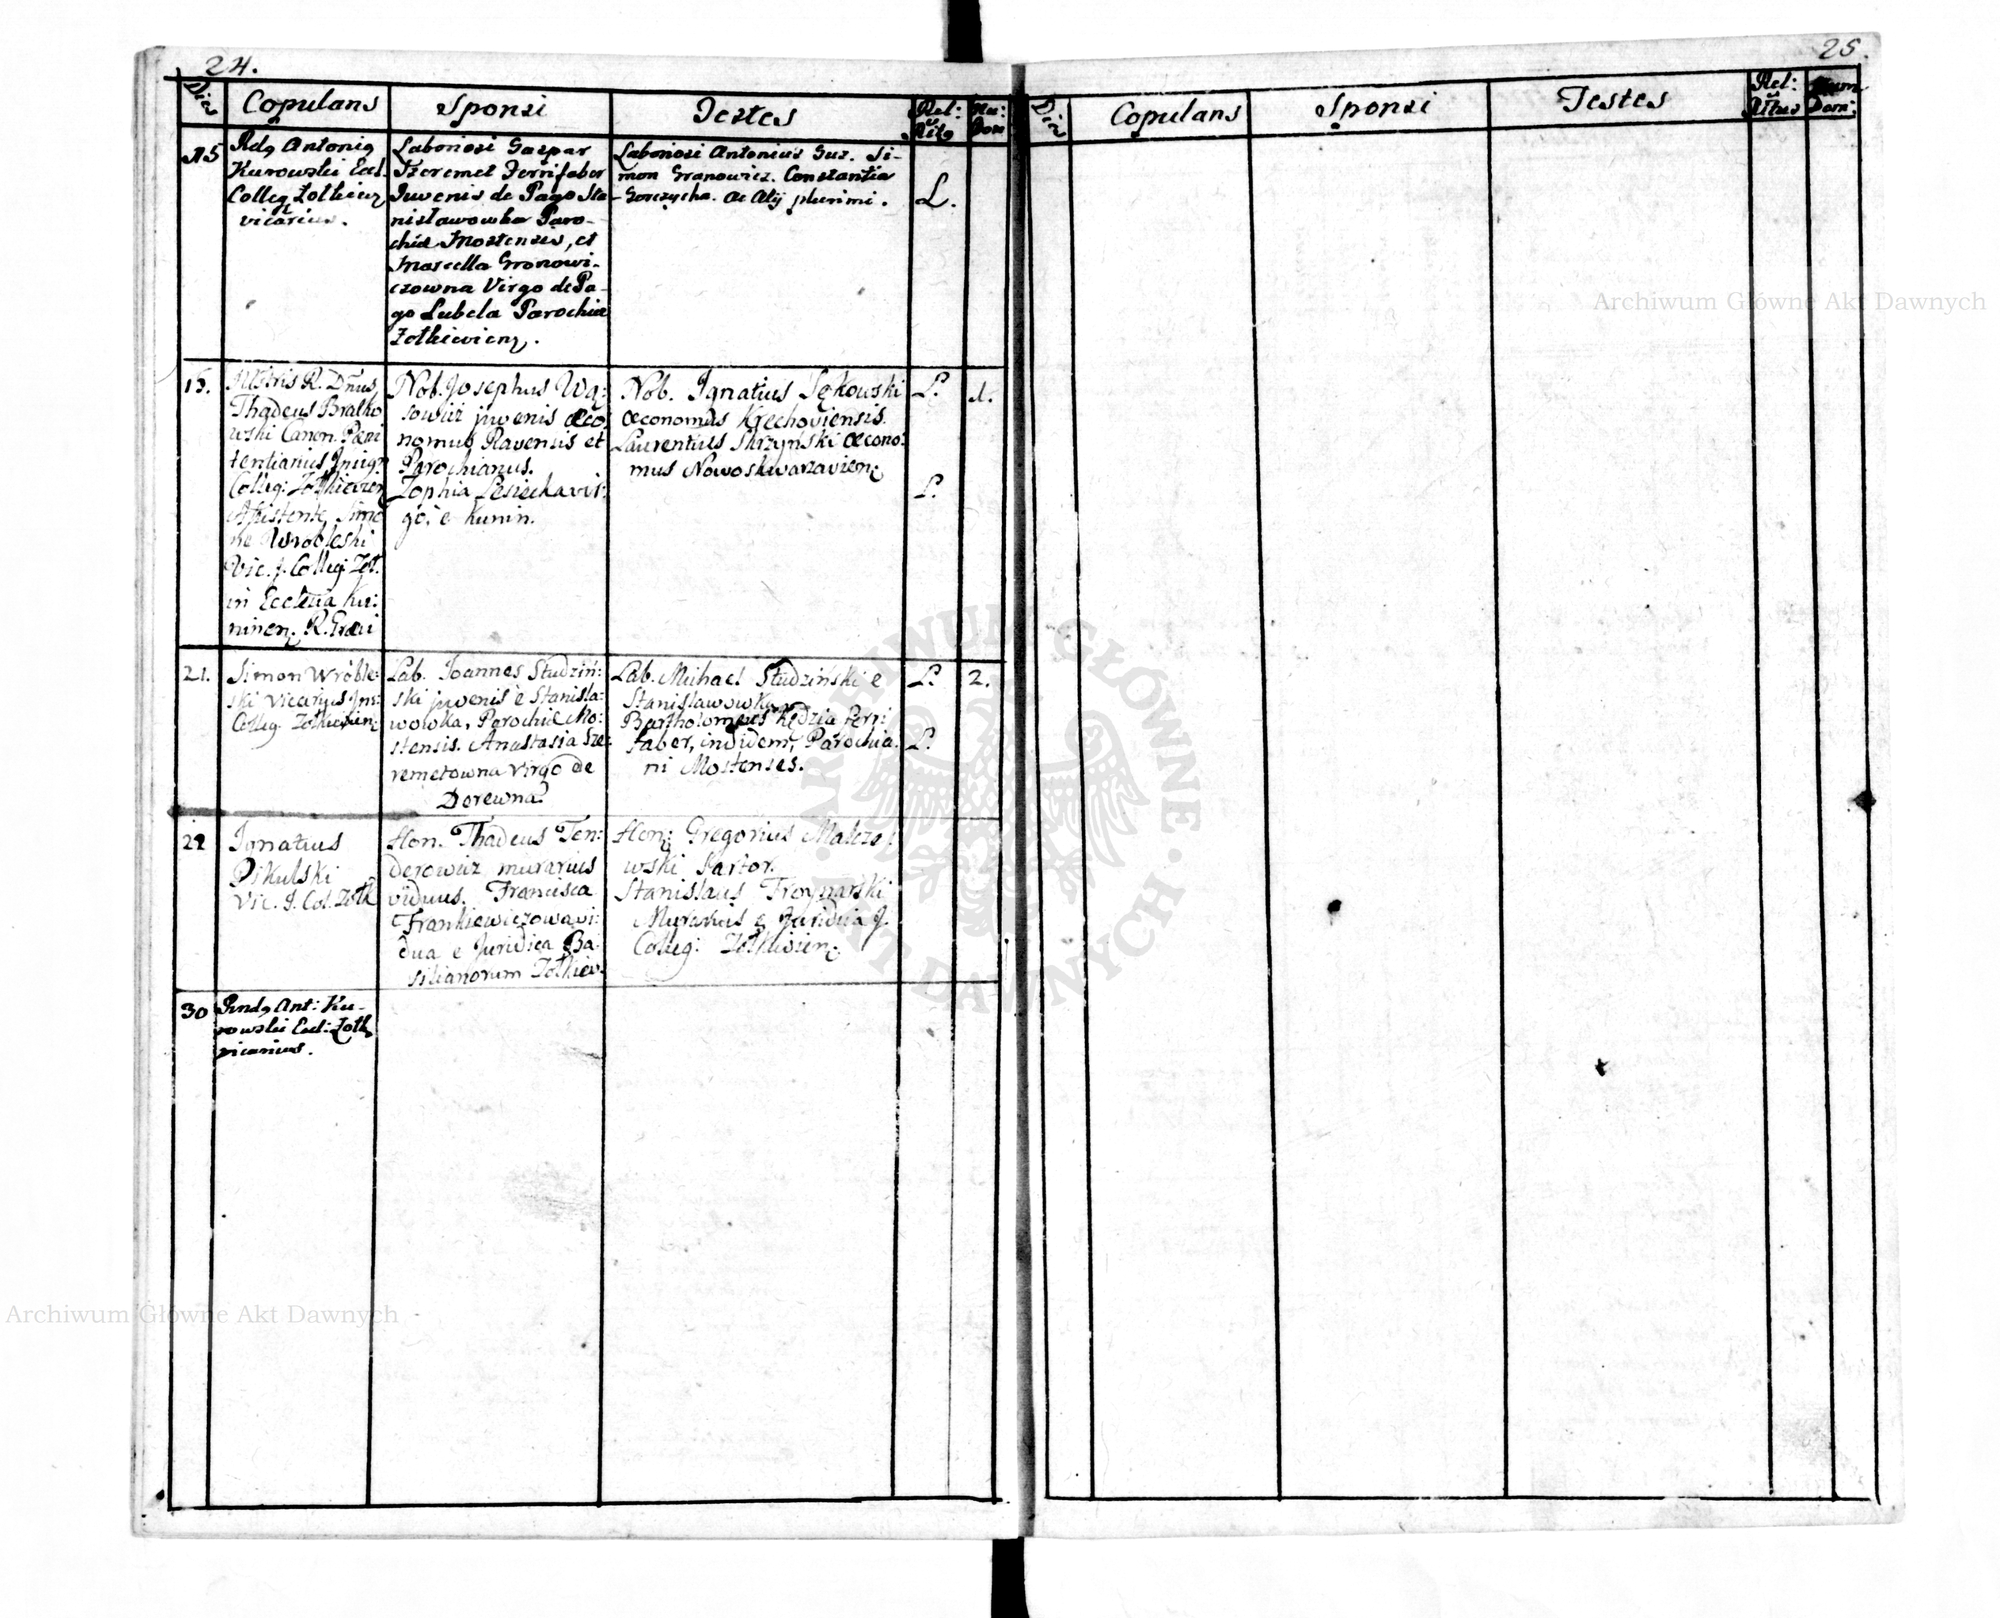 24.
Dies
Copulans
Sponsi
Testes
Rel:
Nu:
Dom
15
Rdg Antonig
Kurowski Eccl.
Colleg Zolkieng
vicarius.
Laboriosi Gaspar
Szeremet Ferrifaber
Juvenis de Pago Sta
nislawowka Paro-
chiæ Mostensis, et
Marcella Gronowi-
czowna Virgo de Pa-
go Lubela Parochiæ
Zolkieviens.
Laboriosi Antonius Guz. Si-
mon Granowicz. Constantia
Gorczycha. Ac Alij plurimi.
L.
15.
Illstris R. Dnus
Thadeus Bratko
wski Canon. Pœni
tentiarius Insign
Colleg: Zolkievien
Assistente Simo
ne Wrobleski
Vic. J. Colleg: Zol.
in Ecclesia Ku:
ninen. R. Græci
Nob. Josephus Wą:
sowicz juvenis œco
nomus Ravensis et
Parochianus.
Zophia Lesiecka vir:
go, e Kunin.
Nob. Ignatius Sękowski
œconomus Krechoviensis.
Laurentius Skrzyński œcono:
mus Nowoskwarzavien.
L.
L.
1.
21.
Simon Wróble:
ski Vicarius Ins:
Colleg. Zolkievien:
Lab. Joannes Studziń:
ski juvenis e Stanisla:
wowka, Parochiæ Mo:
stensis. Anastasia Sze:
remetowna Virgo de
Derewna.
Lab. Michael Studziński e
Stanislawowka
Bartholomeus Kędzia ferri
faber, indidem, Parochia:
ni Mostenses.
L.
L.
2.
22
Ignatius
Pikulski
Vic. J. Col. Zolk
Hon. Thadeus Ten:
derowicz murarius
viduus. Francisca
Frankiewiczowa vi:
dua e Juridica Ba:
silianorum Zolkiev.
Hon: Gregorius Malcze:
wski Sartor.
Stanislaus Troynarski
Murarius e Juridica J.
Colleg: Zolkievien.
30
Rndg Ant: Ku-
rowski Eccl: Zolk
vicarius.
25.
Dies
Copulans
Sponsi
Testes
Rel:
Ritus
Num
Dom:
Archiwum Główne Akt Dawnych
Archiwum Główne Akt Dawnych
ARCHIWUM GŁÓWNE AKT DAWNYCH